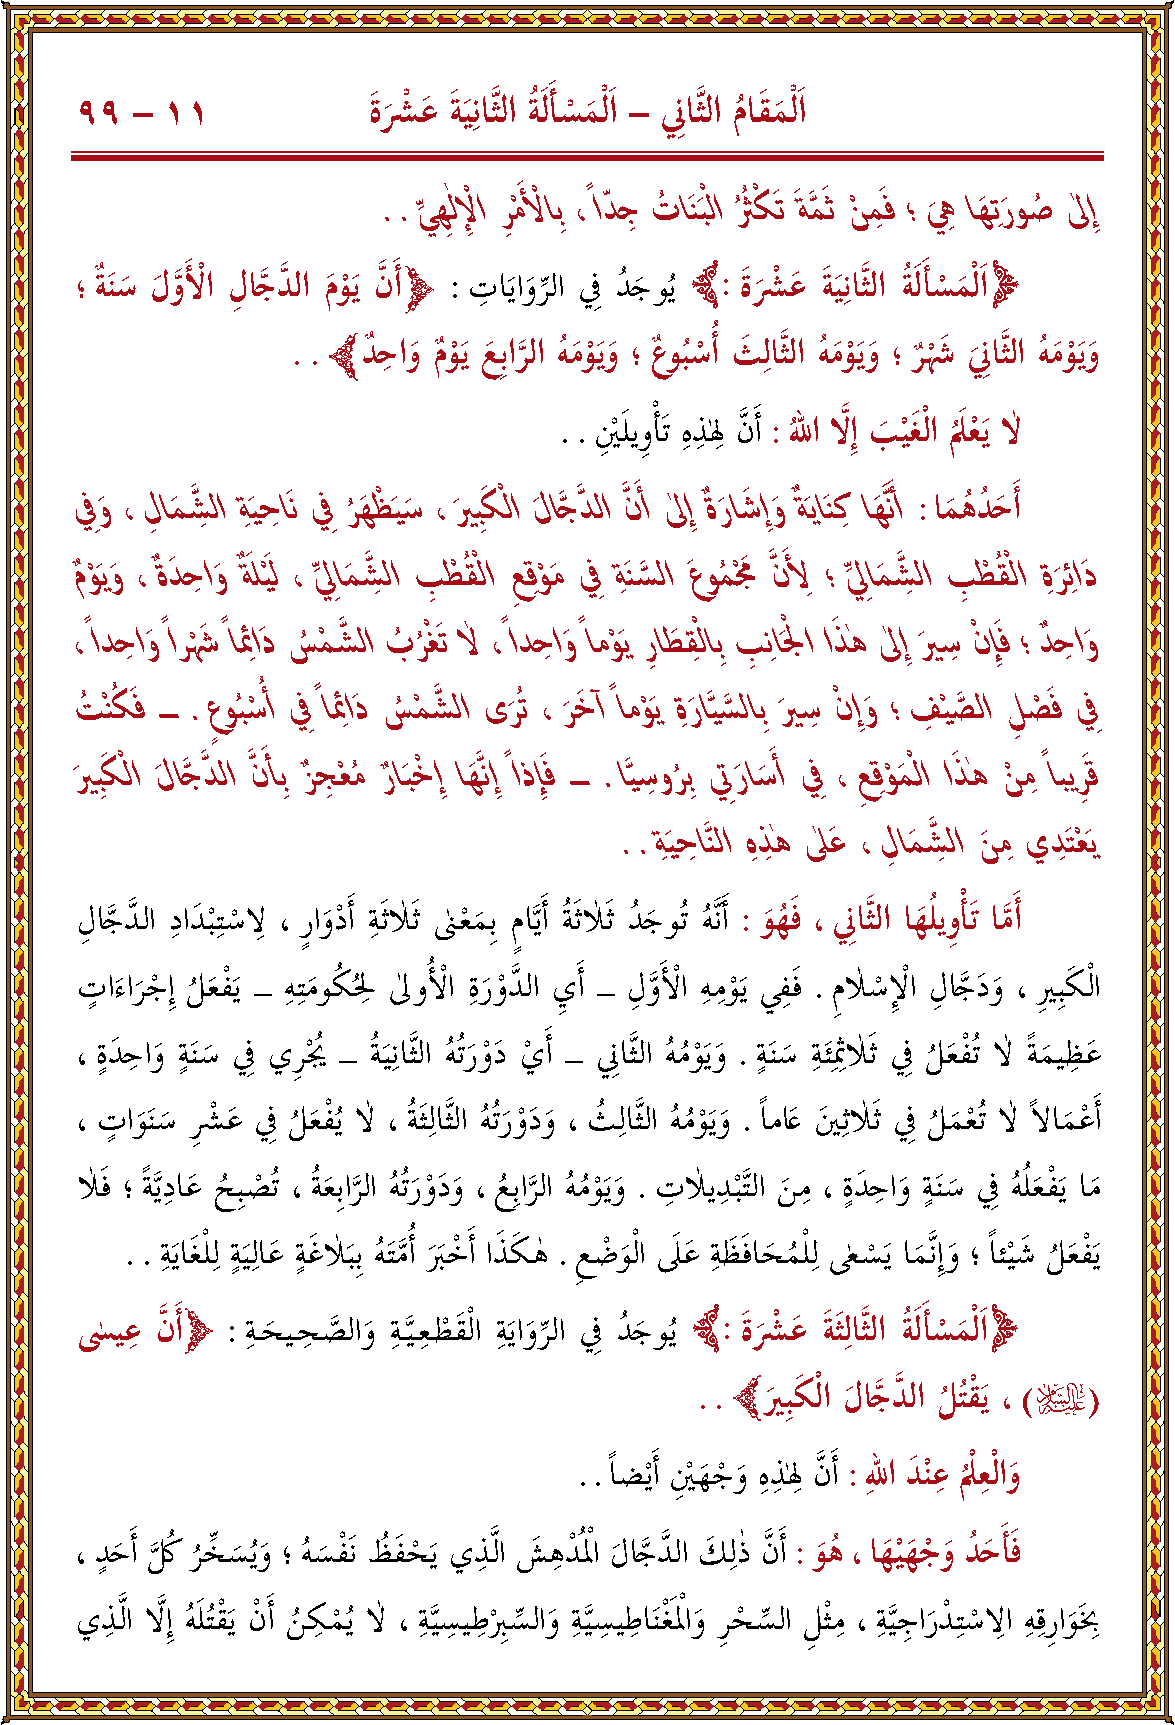 اَلْمَقَامُ الثَّانِي – اَلْمَسْأَلَةُ الثَّانِيَةَ عَشْرَةَ ١١ – ٩٩
إِلىٰ صُورَتِهَا هِيَ ؛ فَمِنْ ثَمَّةَ تَكْثُرُ الْبَنَاتُ جِدّاً ، بِالْأَمْرِ الْإِلٰهِيِّ . .
﴿اَلْمَسْأَلَةُ الثَّانِيَةَ عَشْرَةَ :﴾ يُوجَدُ فِي الرِّوَايَاتِ : ﴿أَنَّ يَوْمَ الدَّجَّالِ الْأَوَّلَ سَنَةٌ ؛
وَيَوْمَهُ الثَّانِيَ شَهْرٌ ؛ وَيَوْمَهُ الثَّالِثَ أُسْبُوعٌ ؛ وَيَوْمَهُ الرَّابِعَ يَوْمٌ وَاحِدٌ﴾ . .
لاٰ يَعْلَمُ الْغَيْبَ إِلَّا اللهُ : أَنَّ لِهٰذِهِ تَأْوِيلَيْنِ . .
أَحَدُهُمَا : أَنَّهَا كِنَايَةٌ وَإِشَارَةٌ إِلىٰ أَنَّ الدَّجَّالَ الْكَبِيرَ ، سَيَظْهَرُ فِي نَاحِيَةِ الشَّمَالِ ، وَفِي
دَائِرَةِ الْقُطْبِ الشَّمَالِيِّ ؛ لِأَنَّ مَجْمُوعَ السَّنَةِ فِي مَوْقِعِ الْقُطْبِ الشَّمَالِيِّ ، لَيْلَةٌ وَاحِدَةٌ ، وَيَوْمٌ
وَاحِدٌ ؛ فَإِنْ سِيرَ إِلىٰ هٰذَا الْجَانِبِ بِالْقِطَارِ يَوْماً وَاحِداً ، لاٰ تَغْرُبُ الشَّمْسُ دَائِماً شَهْراً وَاحِداً ،
فِي فَصْلِ الصَّيْفِ ؛ وَإِنْ سِيرَ بِالسَّيَّارَةِ يَوْماً آخَرَ ، تُرَى الشَّمْسُ دَائِماً فِي أُسْبُوعٍ . – فَكُنْتُ
قَرِيباً مِنْ هٰذَا الْمَوْقِعِ ، فِي أَسَارَتِي بِرُوسِيَّا . – فَإِذاً إِنَّهَا إِخْبَارٌ مُعْجِزٌ بِأَنَّ الدَّجَّالَ الْكَبِيرَ
يَعْتَدِي مِنَ الشَّمَالِ ، عَلىٰ هٰذِهِ النَّاحِيَةِ . .
أَمَّا تَأْوِيلُهَا الثَّانِي ، فَهُوَ : أَنَّهُ تُوجَدُ ثَلاٰثَةُ أَيَّامٍ بِمَعْنىٰ ثَلاٰثَةِ أَدْوَارٍ ، لِاسْتِبْدَادِ الدَّجَّالِ
الْكَبِيرِ ، وَدَجَّالِ الْإِسْلاٰمِ . فَفِي يَوْمِهِ الْأَوَّلِ – أَيِ الدَّوْرَةِ الْأُولىٰ لِحُكُومَتِهِ – يَفْعَلُ إِجْرَاءَاتٍ
عَظِيمَةً لاٰ تُفْعَلُ فِي ثَلاٰثِمِئَةِ سَنَةٍ . وَيَوْمُهُ الثَّانِي – أَيْ دَوْرَتُهُ الثَّانِيَةُ – يُجْرِي فِي سَنَةٍ وَاحِدَةٍ ،
أَعْمَالاً لاٰ تُعْمَلُ فِي ثَلاٰثِينَ عَاماً . وَيَوْمُهُ الثَّالِثُ ، وَدَوْرَتُهُ الثَّالِثَةُ ، لاٰ يُفْعَلُ فِي عَشْرِ سَنَوَاتٍ ،
مَا يَفْعَلُهُ فِي سَنَةٍ وَاحِدَةٍ ، مِنَ التَّبْدِيلاٰتِ . وَيَوْمُهُ الرَّابِعُ ، وَدَوْرَتُهُ الرَّابِعَةُ ، تُصْبِحُ عَادِيَّةً ؛ فَلاٰ
يَفْعَلُ شَيْئاً ؛ وَإِنَّمَا يَسْعىٰ لِلْمُحَافَظَةِ عَلَى الْوَضْعِ . هٰكَذَا أَخْبَرَ أُمَّتَهُ بِبَلاٰغَةٍ عَالِيَةٍ لِلْغَايَةِ . .
﴿اَلْمَسْأَلَةُ الثَّالِثَةَ عَشْرَةَ :﴾ يُوجَدُ فِي الرِّوَايَةِ الْقَطْعِيَّةِ وَالصَّحِيحَةِ : ﴿أَنَّ عِيسىٰ
(عَلَيْهِ السَّلَامُ) ، يَقْتُلُ الدَّجَّالَ الْكَبِيرَ﴾ . .
وَالْعِلْمُ عِنْدَ اللهِ : أَنَّ لِهٰذِهِ وَجْهَيْنِ أَيْضاً . .
فَأَحَدُ وَجْهَيْهَا ، هُوَ : أَنَّ ذٰلِكَ الدَّجَّالَ الْمُدْهِشَ الَّذِي يَحْفَظُ نَفْسَهُ ؛ وَيُسَخِّرُ كُلَّ أَحَدٍ ،
بِخَوَارِقِهِ الِاسْتِدْرَاجِيَّةِ ، مِثْلِ السِّحْرِ وَالْمَغْنَاطِيسِيَّةِ وَالسِّبِرْطِيسِيَّةِ ، لاٰ يُمْكِنُ أَنْ يَقْتُلَهُ إِلَّا الَّذِي